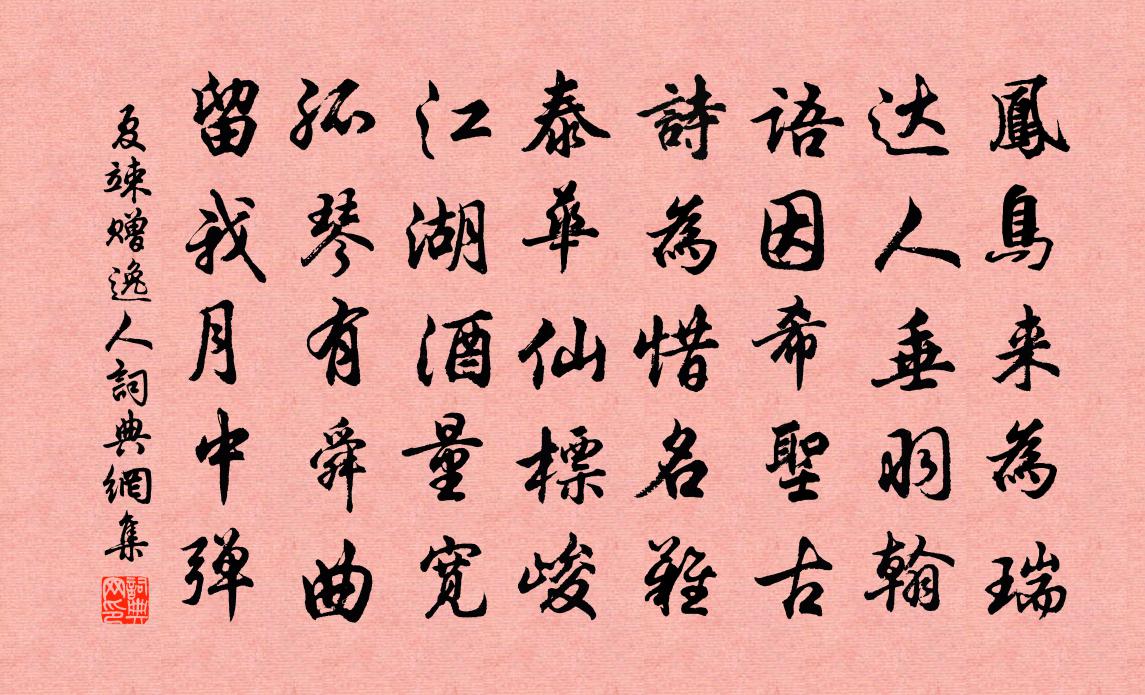 鳳鳥来為瑞
达人垂羽翰
語因希聖古
詩為惜名難
泰華仙標峻
江湖酒量宽
孤琴有舜曲
留我月中弹
夏竦赠逸人詞典網集
詞典网印